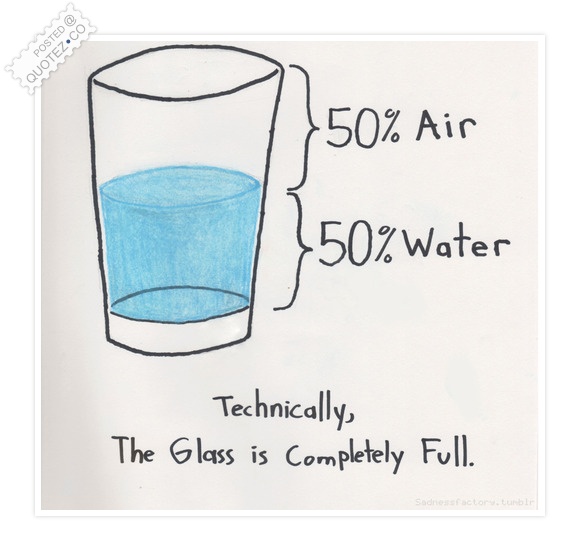 POSTED @
QUOTEZ.CO
50% Air
50% Water
Technically,
The Glass is Completely Full.
Sadnessfactory.tumblr